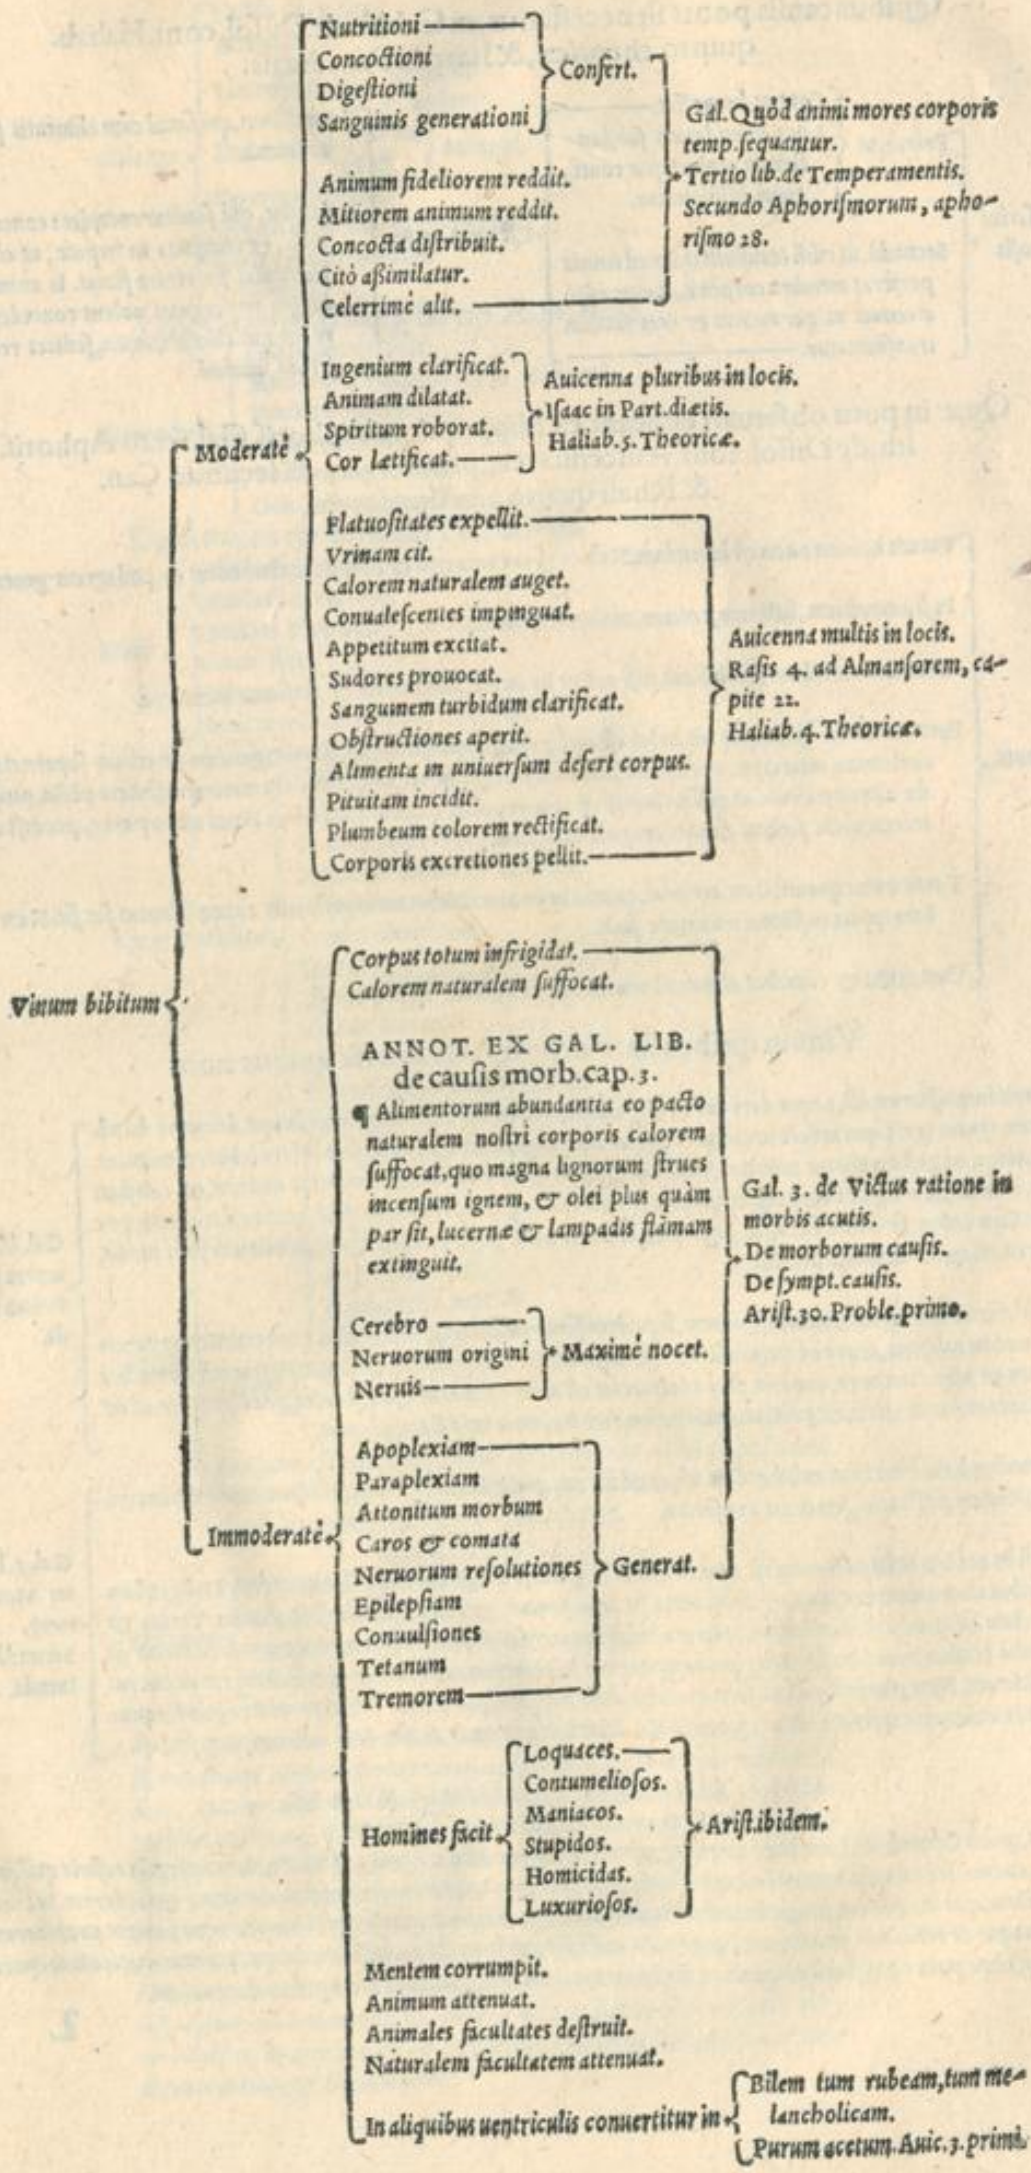 Vinum bibitum
Moderatè
Nutritioni
Concoctioni
Digeſtioni
Sanguinis generationi
Confert.
Animum fideliorem reddit.
Mitiorem animum reddit.
Concocta diſtribuit.
Citò aßimilatur.
Celerrimè alit.
Gal. Quòd animi mores corporis
temp. ſequantur.
Tertio lib. de Temperamentis.
Secundo Aphoriſmorum, apho-
riſmo 28.
Ingenium clarificat.
Animam dilatat.
Spiritum roborat.
Cor lætificat.
Auicenna pluribus in locis.
Iſaac in Part. diætis.
Haliab. 5. Theoricæ.
Flatuoſitates expellit.
Vrinam cit.
Calorem naturalem auget.
Conualeſcentes impinguat.
Appetitum excitat.
Sudores prouocat.
Sanguinem turbidum clarificat.
Obſtructiones aperit.
Alimenta in uniuerſum defert corpus.
Pituitam incidit.
Plumbeum colorem rectificat.
Corporis excretiones pellit.
Auicenna multis in locis.
Raſis 4. ad Almanſorem, ca-
pite 22.
Haliab. 4. Theoricæ.
Immoderatè
Corpus totum infrigidat.
Calorem naturalem ſuffocat.
ANNOT. EX GAL. LIB.
de cauſis morb. cap. 3.
¶ Alimentorum abundantia eo pacto
naturalem noſtri corporis calorem
ſuffocat, quo magna lignorum ſtrues
incenſum ignem, & olei plus quàm
par ſit, lucernæ & lampadis flãmam
extinguit.
Cerebro
Neruorum origini
Neruis
Maximè nocet.
Apoplexiam
Paraplexiam
Attonitum morbum
Caros & comata
Neruorum reſolutiones
Epilepſiam
Conuulſiones
Tetanum
Tremorem
Generat.
Gal. 3. de Victus ratione in
morbis acutis.
De morborum cauſis.
De ſympt. cauſis.
Ariſt. 30. Proble. primo.
Homines facit
Loquaces.
Contumelioſos.
Maniacos.
Stupidos.
Homicidas.
Luxurioſos.
Ariſt. ibidem.
Mentem corrumpit.
Animum attenuat.
Animales facultates deſtruit.
Naturalem facultatem attenuat.
In aliquibus uentriculis conuertitur in
Bilem tum rubeam, tum me-
lancholicam.
Purum acetum. Auic. 3. primi.